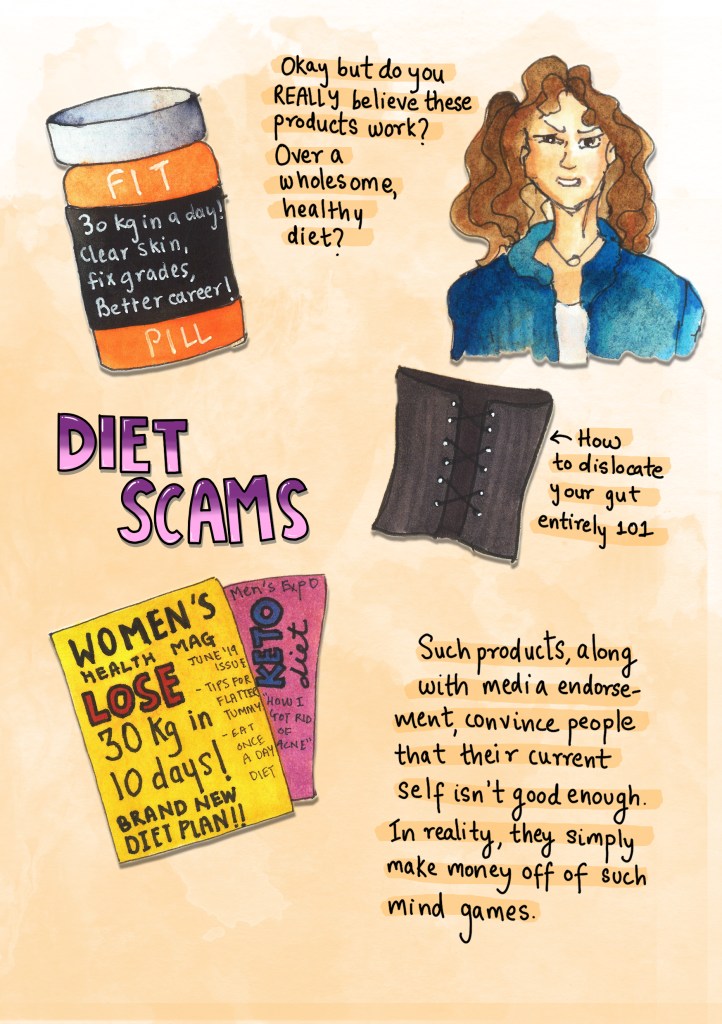 Okay but do you
REALLY believe these
products work?
Over a
wholesome,
healthy
diet?
FIT
30 kg in a day!
Clear skin,
fix grades,
Better career!
PILL
DIET
SCAMS
← How
to dislocate
your gut
entirely 101
WOMEN'S
HEALTH MAG
JUNE '19
ISSUE
LOSE
30 Kg in
10 days!
BRAND NEW
DIET PLAN!!
- TIPS FOR
FLATTER
TUMMY
- EAT
ONCE
A DAY
DIET
Men's Expo
KETO
diet
"HOW I
GOT RID
OF
ACNE"
Such products, along
with media endorse-
ment, convince people
that their current
self isn't good enough.
In reality, they simply
make money off of such
mind games.